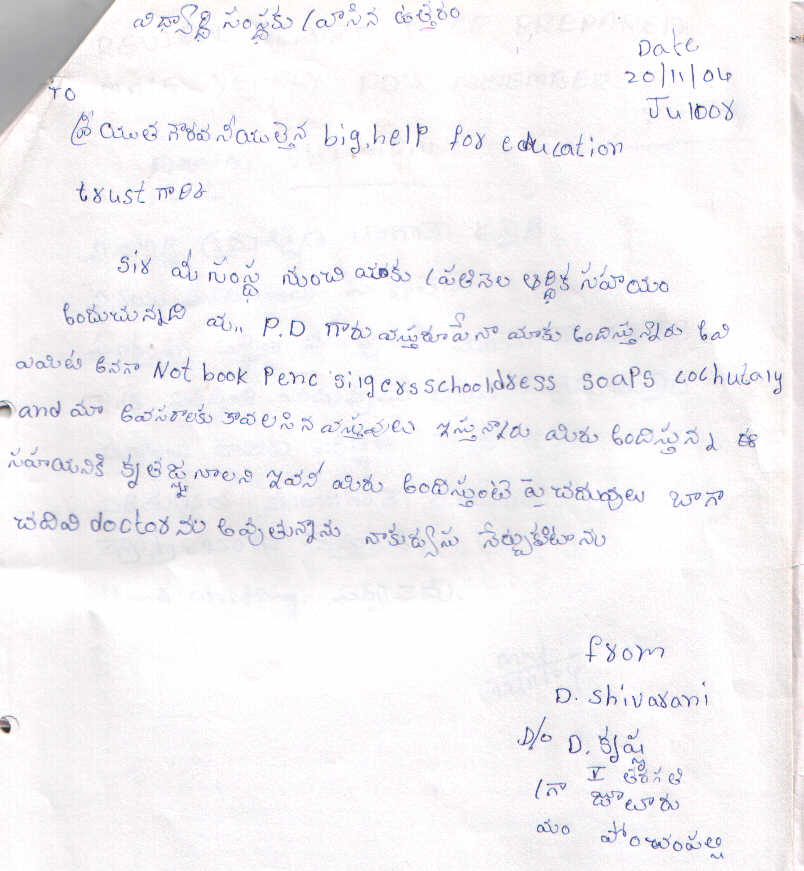 విధ్యార్ధి సంస్థకు వ్రాసిన ఉత్తరం
Date
20/11/04
Juloor
TO
శ్రీ యుత గౌరవనీయులైన big,help for education
trust గారికి
sir మీ సంస్థ నుంచి మాకు ప్రతినెల ఆర్ధిక సహయం
అందుచున్నది మ,, P.D గారు వస్తురూపేనా మాకు అందిస్తున్నారు అవి
ఎమిటి అనగా Not book Penc silgers school,dress soaps cochutary
and మా అవసరాలకు కావలసిన వస్తువులు ఇస్తున్నారు మిరు అందిస్తున్న ఈ
సహయనికి కృతజ్ఞనాలని ఇవనీ మిరు అందిస్తుంటె పై చదువులు బాగా
చదివి doctor నల అవుతున్నాను నాకు నేర్చుకుటాను
from
D. Shivarani
D/o D. కృష్ణ
V తరగతి
గ్రా జూలూరు
మం పోచంపల్లి